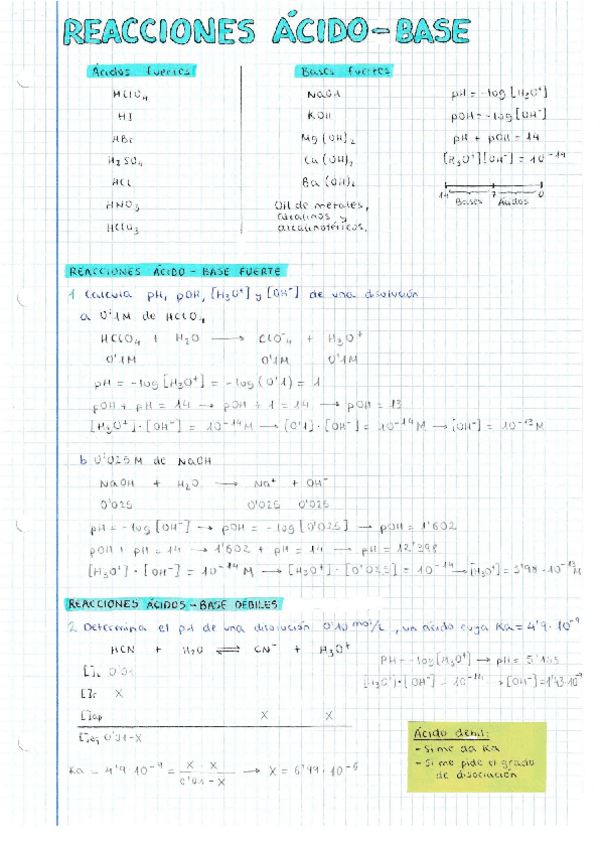 REACCIONES ÁCIDO-BASE
Ácidos fuertes
HClO4
HI
HBr
H2SO4
HCl
HNO3
HClO3
Bases fuertes
NaOH
KOH
Mg(OH)2
Ca(OH)2
Ba(OH)2
OH de metales,
alcalinos y
alcalinotérricos.
pH = -log [H3O+]
pOH = -log [OH-]
pH + pOH = 14
[H3O+][OH-] = 10^-14
14 7 0
Bases Ácidos
REACCIONES ÁCIDO-BASE FUERTE
1 Calcula pH, pOH, [H3O+] y [OH-] de una disolución
a 0'1M de HClO4
HClO4 + H2O → ClO4- + H3O+
0'1M 0'1M 0'1M
pH = -log [H3O+] = -log (0'1) = 1
pOH + pH = 14 → pOH + 1 = 14 → pOH = 13
[H3O+]·[OH-] = 10^-14 M → [0'1]·[OH-] = 10^-14 M → [OH-] = 10^-13 M
b 0'025M de NaOH
NaOH + H2O → Na+ + OH-
0'025 0'025 0'025
pH = -log [OH-] → pOH = -log [0'025] → pOH = 1'602
pOH + pH = 14 → 1'602 + pH = 14 → pH = 12'398
[H3O+]·[OH-] = 10^-14 M → [H3O+]·[0'025] = 10^-14 → [H3O+] = 3'98·10^-13 M
REACCIONES ÁCIDOS-BASE DÉBILES
2 Determina el pH de una disolución 0'10 mol/L, un ácido cuya Ka = 4'9·10^-9
HCN + H2O ⇌ CN- + H3O+
[ ]i 0'01
[ ]r X
[ ]ap X X
[ ]eq 0'01-X
Ka = 4'9·10^-9 = X·X / 0'01-X → X = 6'99·10^-6
pH = -log [H3O+] → pH = 5'155
[H3O+]·[OH-] = 10^-14 → [OH-] = 1'43·10^-9
Ácido débil:
- Si me da Ka
- Si me pide el grado
de disociación